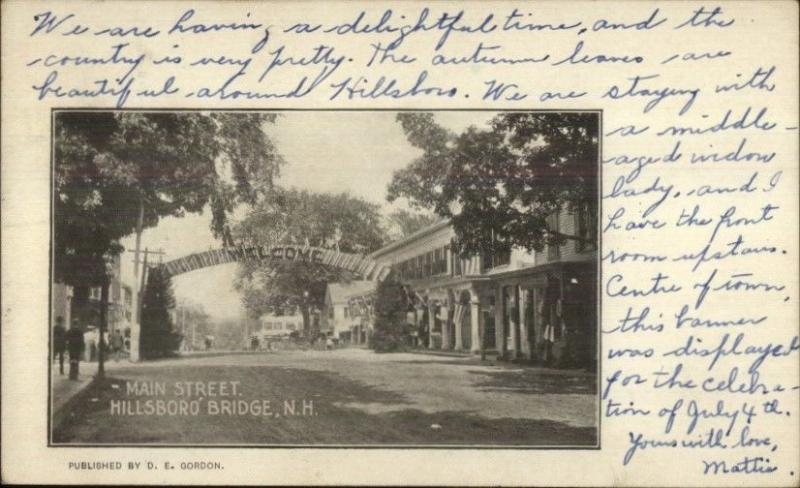 We are having a delightful time, and the
country is very pretty. The autumn leaves are
beautiful around Hillsboro. We are staying with
a middle-
aged widow
lady, and I
have the front
room upstairs.
Centre of town,
this banner
was displayed
for the celebra-
tion of July 4th.
Yours with love,
Mattie.
WELCOME
MAIN STREET.
HILLSBORO' BRIDGE, N.H.
PUBLISHED BY D. E. GORDON.